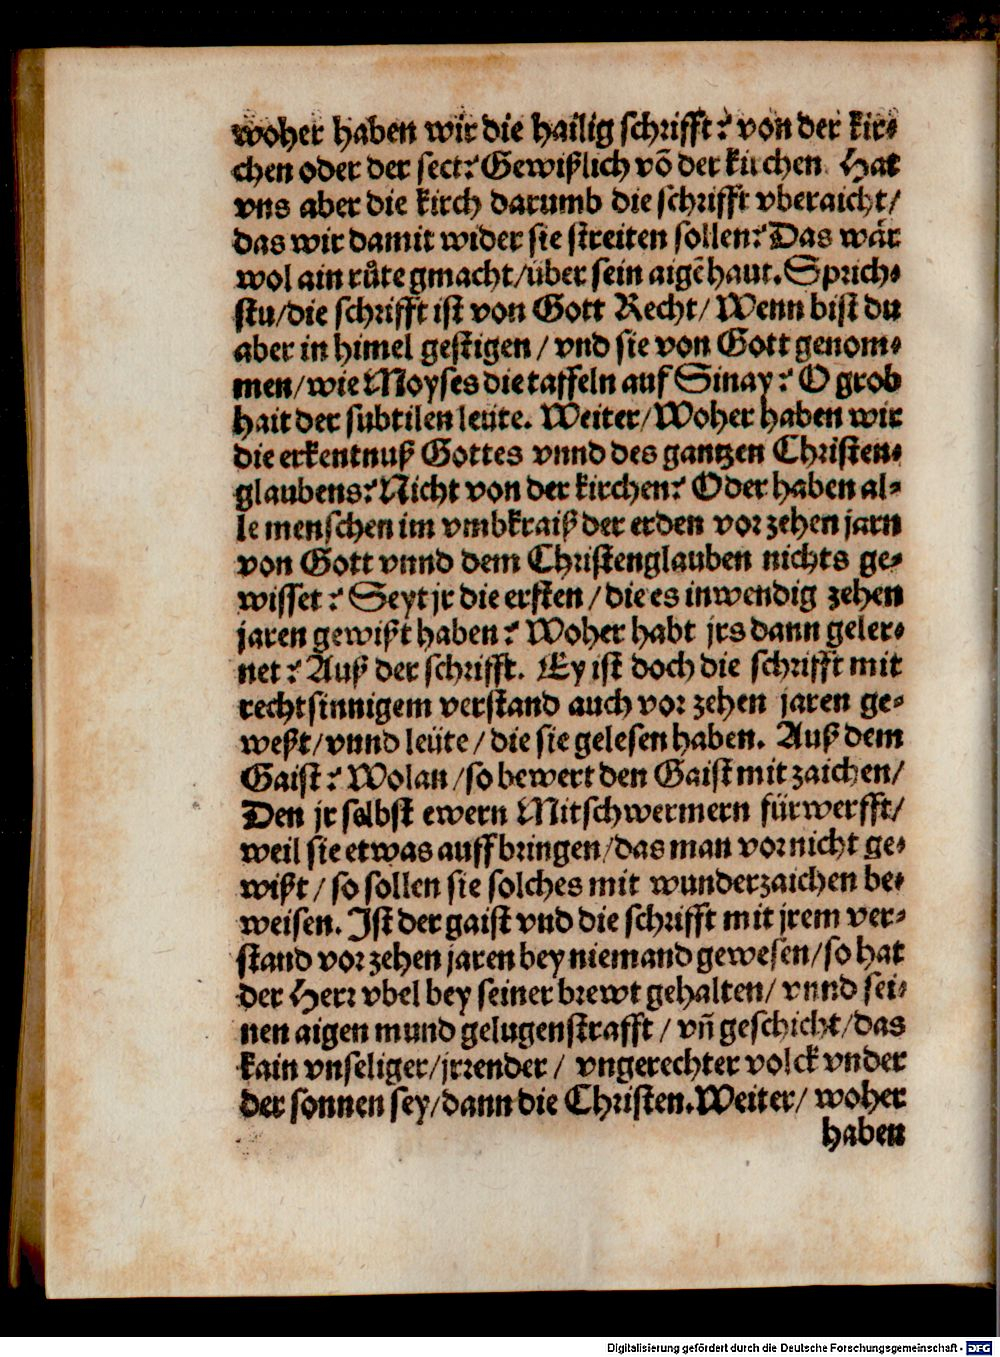 woher haben wir die hailig schrifft? von der kir-
chen oder der sect? Gewißlich võ der kirchen. Hat
vns aber die kirch darumb die schrifft vberaicht/
das wir damit wider sie streiten sollen? Das wår
wol ain růte gmacht/über sein aigẽ haut. Sprich-
stu/die schrifft ist von Gott Recht/ Wenn bist du
aber in himel gestigen / vnd sie von Gott genom-
men/wie Moyses die taffeln auf Sinay? O grob
hait der subtilen leüte. Weiter/Woher haben wir
die erkentnuß Gottes vnnd des gantzen Christen-
glaubens? Nicht von der kirchen? Oder haben al-
le menschen im vmbkraiß der erden vor zehen jarn
von Gott vnnd dem Christenglauben nichts ge-
wisset? Seyt jr die ersten / die es inwendig zehen
jaren gewißt haben? Woher habt jrs dann geler-
net? Auß der schrifft. Ey ist doch die schrifft mit
rechtsinnigem verstand auch vor zehen jaren ge-
weßt/vnnd leüte/ die sie gelesen haben. Auß dem
Gaist? Wolan/so bewert den Gaist mit zaichen/
Den jr selbst ewern Mitschwermern fürwerfft/
weil sie etwas auffbringen/das man vor nicht ge-
wißt / so sollen sie solches mit wunderzaichen be-
weisen. Ist der gaist vnd die schrifft mit jrem ver-
stand vor zehen jaren bey niemand gewesen/so hat
der Herr vbel bey seiner brewt gehalten/ vnnd sei-
nen aigen mund gelugenstrafft / vñ geschicht/das
kain vnseliger/jrrender / vngerechter volck vnder
der sonnen sey/dann die Christen. Weiter/ woher
haben
Digitalisierung gefördert durch die Deutsche Forschungsgemeinschaft - DFG